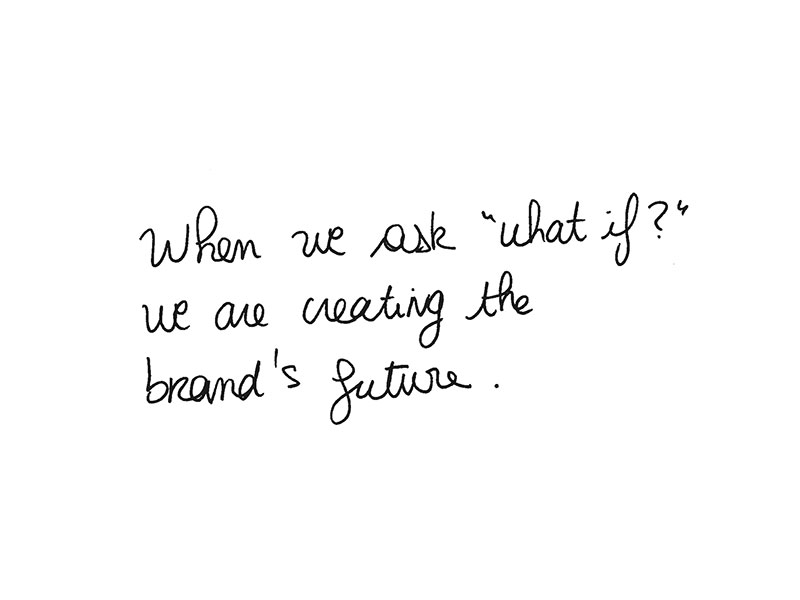 When we ask "what if?"
we are creating the
brand's future.